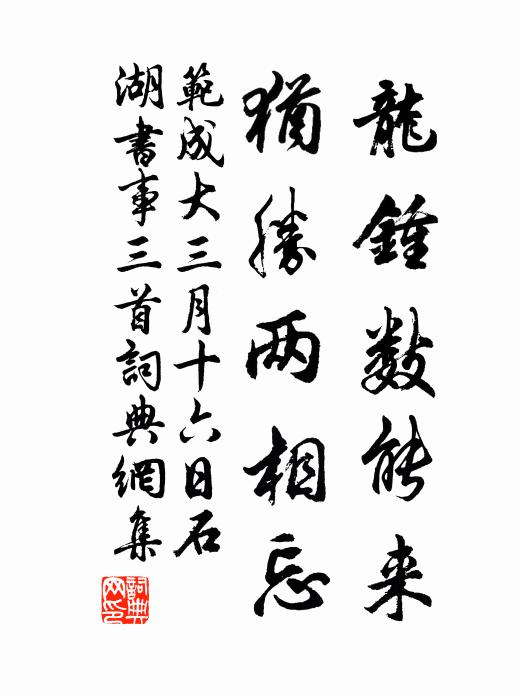 龍鍾數能来
猶勝两相忘
範成大三月十六日石
湖書事三首詞典網集
詞典
网印